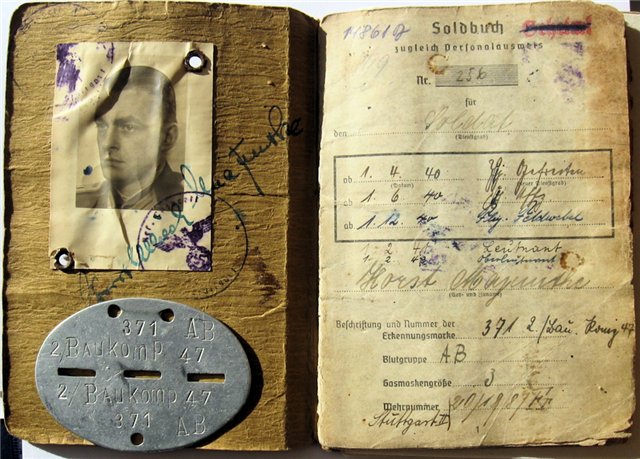 371 AB
2/BAUKOMP 47
2/BAUKOMP 47
371 AB
118610
Soldbuch
zugleich Personalausweis
Nr. 256
für
den Soldat
(Dienstgrad)
ab 1. 4. 40 Gefreiten
(Datum) (neuer Dienstgrad)
ab 1. 6. 40
ab 1. 12. 40 Feldwebel
1. 2. 41 Leutnant
1. 2. 42 Oberleutnant
Horst
(Vor- und Zuname)
Beschriftung und Nummer der
Erkennungsmarke 371 2./Bau. Komp 47
Blutgruppe AB
Gasmaskengröße 3
Wehrnummer
Stuttgart II